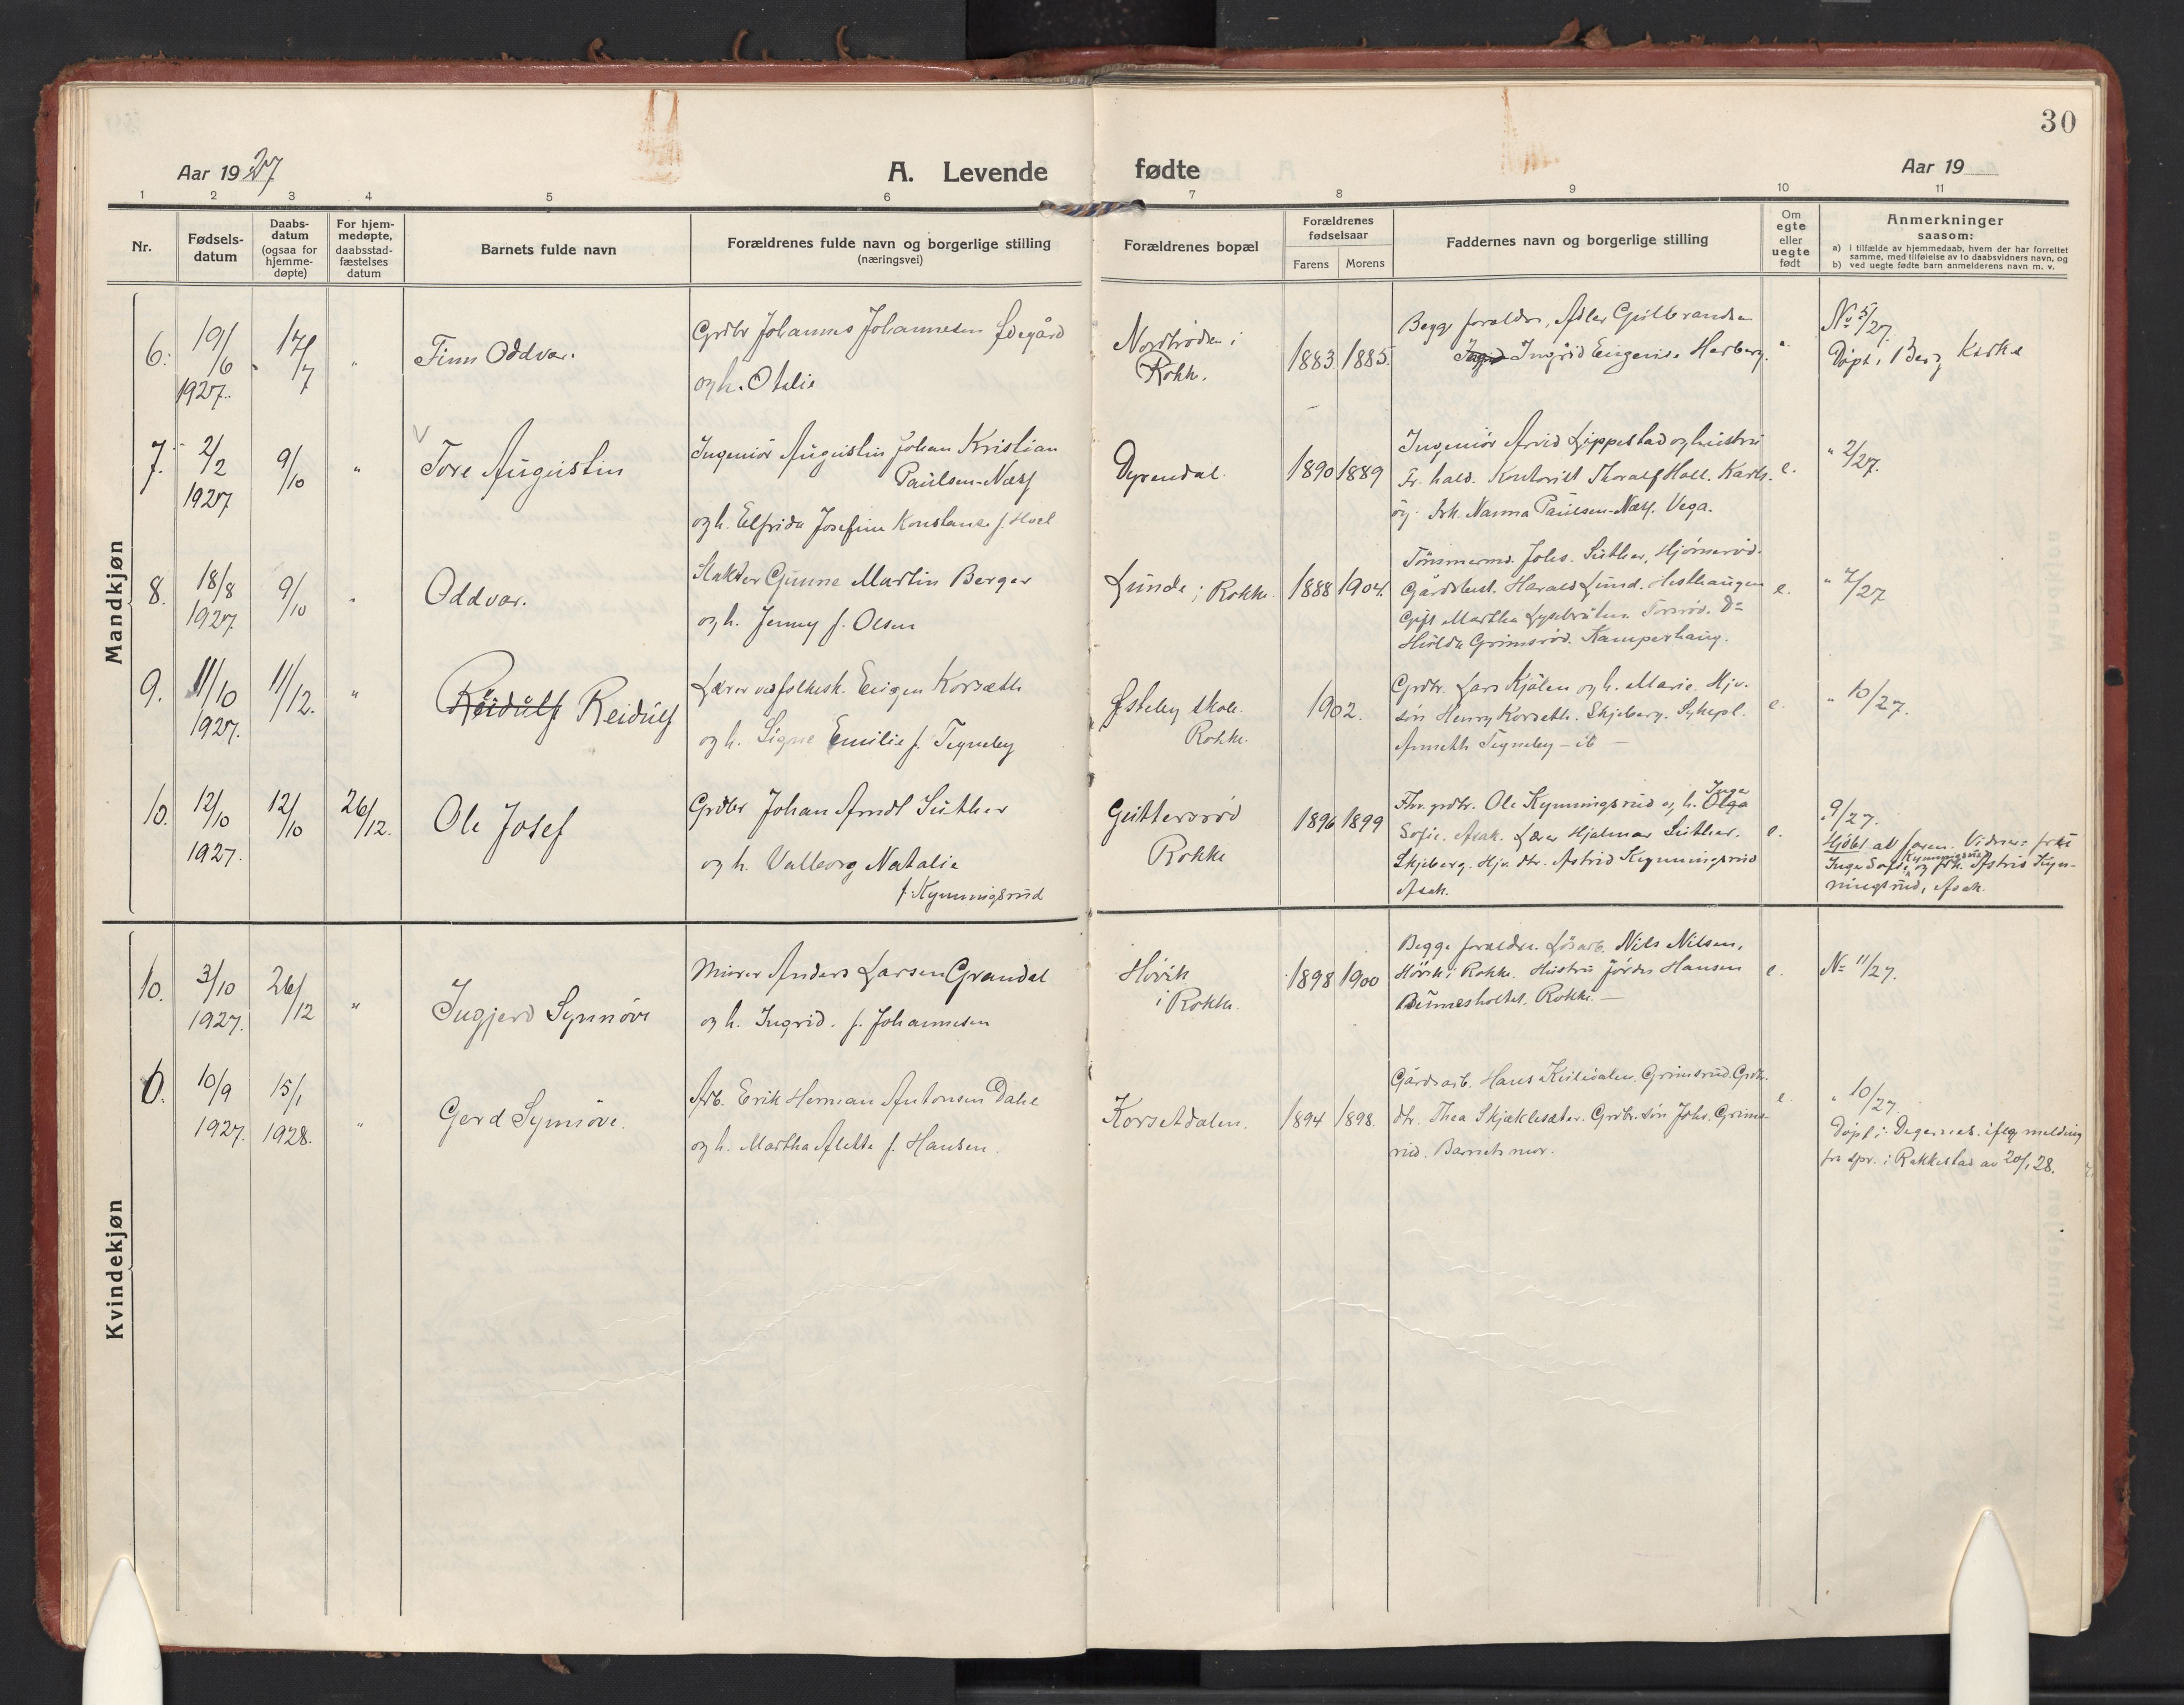 30
Aar 1927 A. Levende fødte Aar 19
1 2 3 4 5 6 7 8 9 10 11
Nr. Fødsels-datum Daabs-datum (ogsaa for hjemme-døpte) For hjem-medøpte, daabsstad-fæstelses datum Barnets fulde navn Forældrenes fulde navn og borgerlige stilling (næringsvei) Forældrenes bopæl Forældrenes fødselsaar Farens Morens Faddernes navn og borgerlige stilling Om egte eller uegte født Anmerkninger saasom:
a) i tilfælde av hjemmedaab, hvem der har forrettet samme, med tilføielse av to daabsvidners navn, og
b) ved uegte fødte barn anmelderens navn m. v.
Mandkjøn
6. 19/6 1927. 17/7 "
Finn Oddvar.
Grdbr Johannes Johannesen Ødegård
og h. Otelie
Rokk.
1883 1885.
Begge foreldre, Adler Gulbrandsen
Ingrid Eugenie Herberg.
No 5/27.
Døpt i Berg Kirke
7. 2/2 1927 9/10 "
Tore Augustin
Ingeniør Augustin Johan Kristian
Paulsen-Næss
og h. Elfrida Josefine Konstanse f. Hoel
Dyrendal.
1890 1889
Ingeniør Arvid Lippestad og hustru
Fr.hald. Kontorist Thoralf Hall. Karls-
øy. Frk. Nanna Paulsen-Næss. Vega.
e.
" 2/27.
8. 18/8 1927 9/10 "
Oddvar.
Slakter Gunne Martin Berger
og h. Jenny f. Olsen
Lunde i Rokke.
1888 1904.
Tømmermd. Johs. Suther, Hjørnerød.
Gårdbest. Harald Lund. Hesthaugen
Gift Martha Lysebråten. Tornrød. Do
Hulda Grimsrød. Kamperhaug.
e.
" 7/27
9. 11/10 1927. 11/12. "
Reidulf Reidulf
Lærer ved folkesk. Eugen Korsæth
og h. Signe Emilie f. Tegneby
Østeby skole.
Rokke.
1902.
Grdbr. Lars Kjølen og h. Marie. Hjv.
søn Henry Korseth. Skjeberg. Sykepl.
Anneth Tegneby – ib –
e.
" 10/27.
10. 12/10 1927. 12/10 26/12.
Ole Josef
Grdbr Johan Arndt Suther
og h. Valborg Natalie
f. Kynningsrud
Guttersrød
Rokke
1896 1899
Fhv. grdbr. Ole Kynningsrud og h. Olga Inga
Sofie. Asak. Lærer Hjalmar Suther.
Skjeberg. Hjv. dtr. Astrid Kynningsrud
Asak.
e.
9/27.
Hjdøbt av faren. Vidner: fru
Inga Sofie Kynningsrud og frk. Astrid Kyn-
ningsrud, Asak.
Kvindekjøn
10. 3/10 1927. 26/12 "
Ingjerd Synnøve
Murer Anders Larsen Grandal
og h. Ingrid. f. Johannesen
Høvik
i Rokke.
1898 1900
Begge foreldre. Løsarb. Nils Nilsen,
Høvik i Rokke. Hustru Jørdis Hansen
Rokke. –
e.
No 11/27.
10/9 1927. 15/1 1928. "
Gerd Synnøve.
Arb. Erik Herman Antonsen Dahl
og h. Martha Alette f. Hansen.
Korsetdalen.
1894 1898.
Gårdsarb. Hans Grimsrud. Grdbr.
dtr. Thea Skjæklesæter. Grdbr. søn Johs. Grims-
rud. Barnets mor.
e
" 10/27.
Døpt i Degernes. ifølg melding
fra spr. i Rakkestad av 20/1 28.